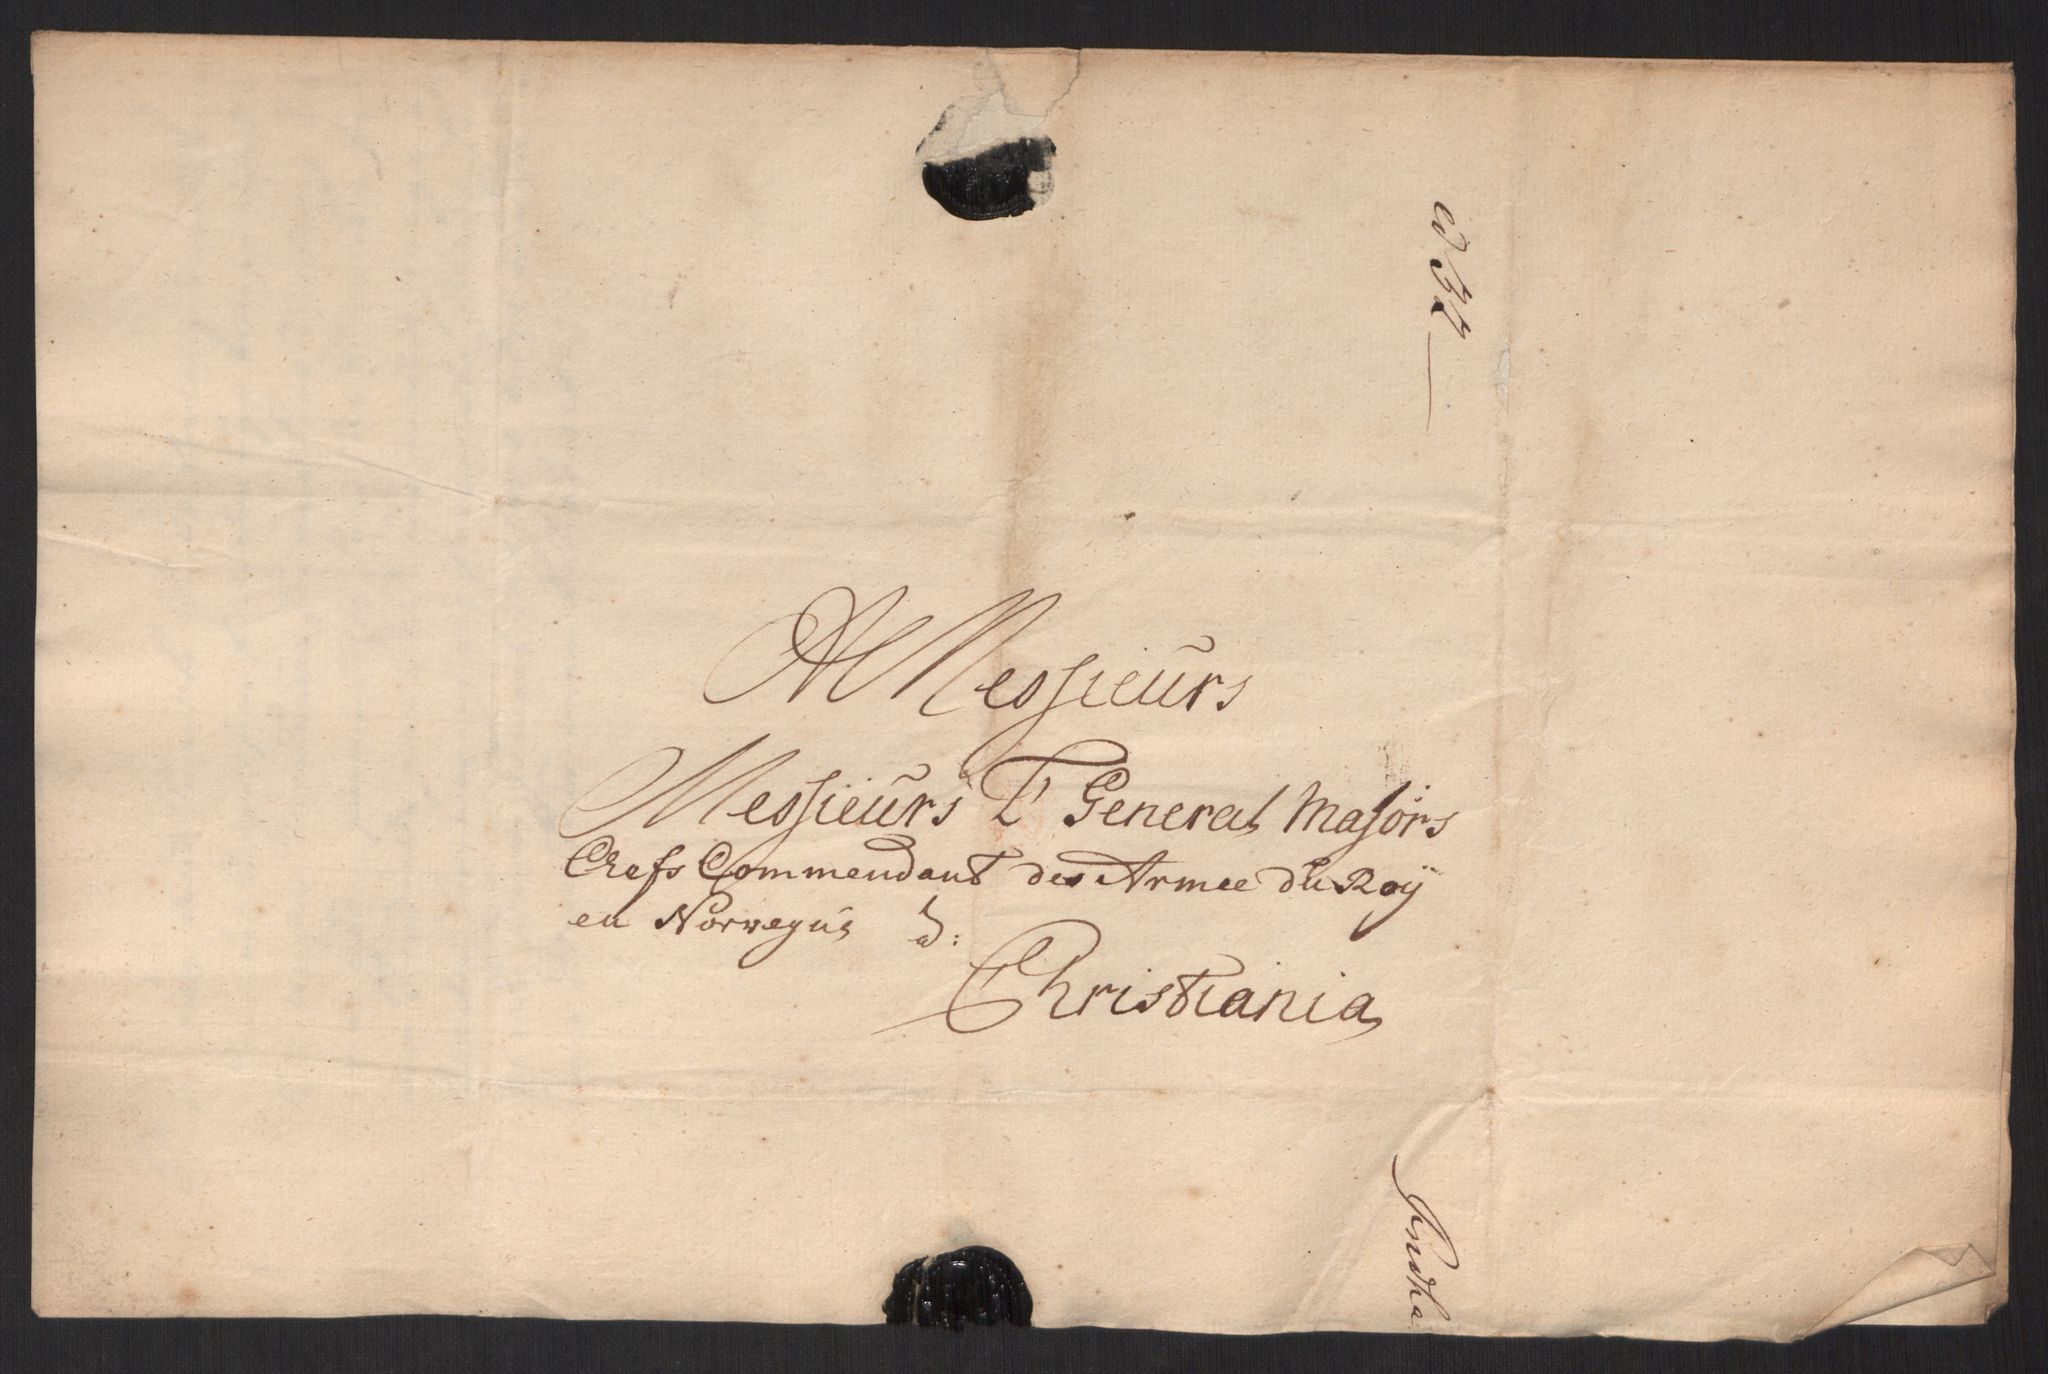 A Messieurs
Messieurs L' General Majors
Chefs Commendant des Armee du Roÿ
en Norvegus a:
Christiania